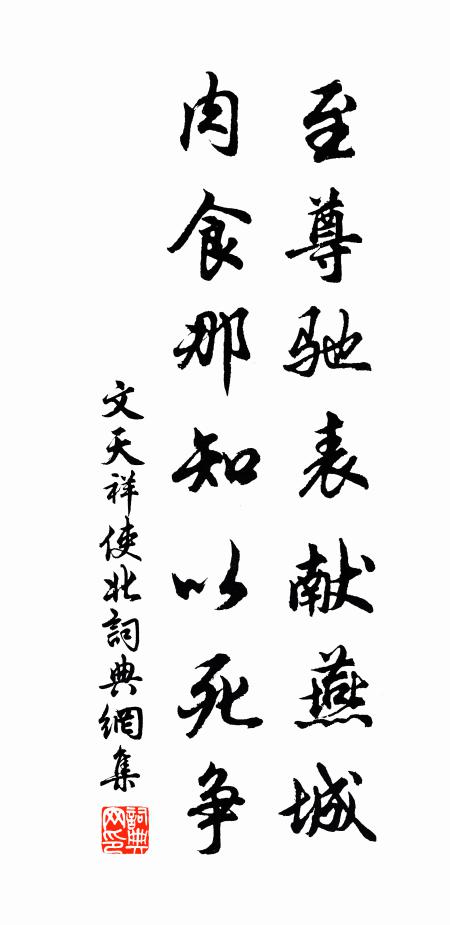 至尊驰表献燕城
肉食那知以死争
文天祥使北詞典網集
詞典網印